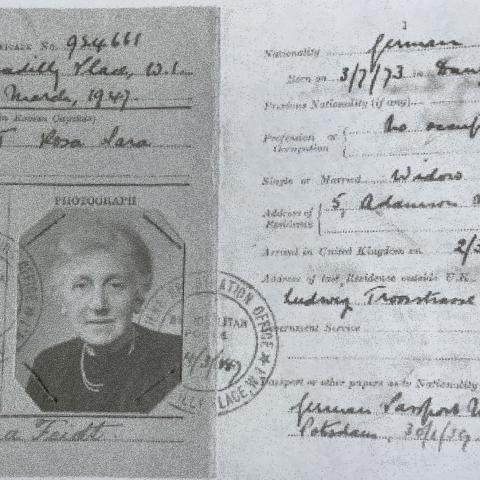 No. 984661
Place, W.1.
March, 1947.
in Roman Capitals)
T Rosa Sara
PHOTOGRAPH
OFFICE
REGISTRATION OFFICE
METROPOLITAN
PLACE, W.1
a Feidt.
1
Nationality German
Born on 3/7/73 in
Previous Nationality (if any)
Profession or Occupation No occup
Single or Married Widow
Address of Residence 5, Adamson
Arrived in United Kingdom on 2/3
Address of last Residence outside U.K.
Ludwig
Government Service
Passport or other papers as to Nationality
German Passport
Potsdam,